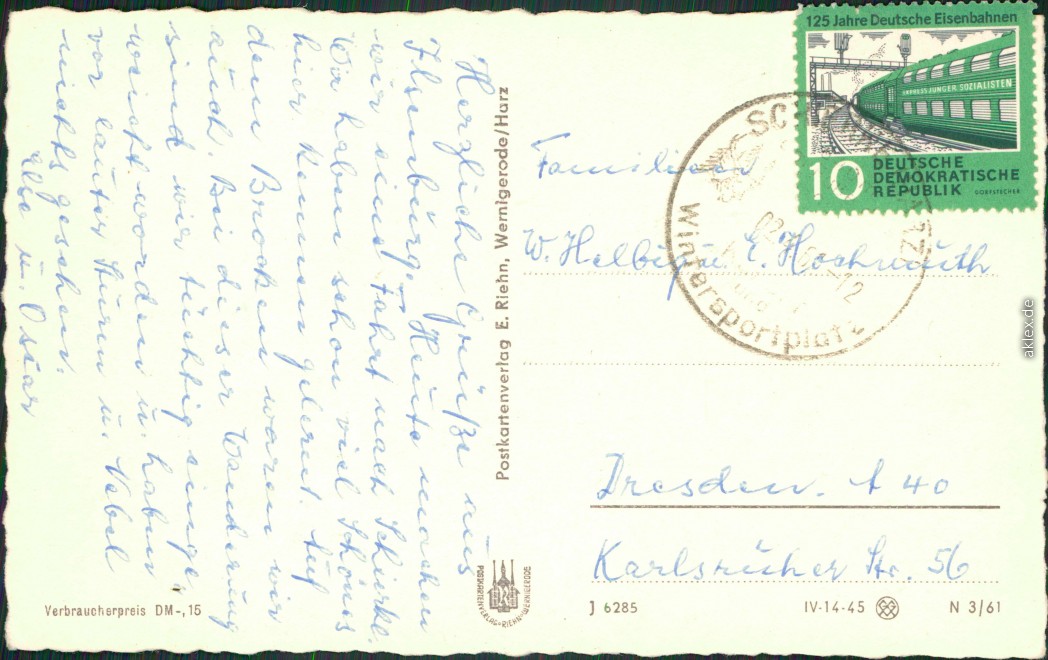 Herzliche Grüße aus
Ilsenburg. Heute machen
wir eine Fahrt nach Schierke.
Wir haben schon viel Schönes
hier kennen gelernt. Auf
dem Brocken waren wir
auch. Bei dieser Wanderung
sind wir tüchtig einge-
weicht worden u. haben
vor lauter Sturm u. Nebel
nichts gesehen.
Else u. Oskar
Verbraucherpreis DM -,15
Postkartenverlag E. Riehn, Wernigerode/Harz
POSTKARTENVERLAG RIEHN WERNIGERODE
125 Jahre Deutsche Eisenbahnen
EXPRESS JUNGER SOZIALISTEN
10 DEUTSCHE
DEMOKRATISCHE
REPUBLIK
Wintersportplatz
Familien
W. Helbig u. E. Hochmuth
Dresden. A 40
Karlsruher Str. 56
J 6285
IV-14-45
N 3/61
aklex.de